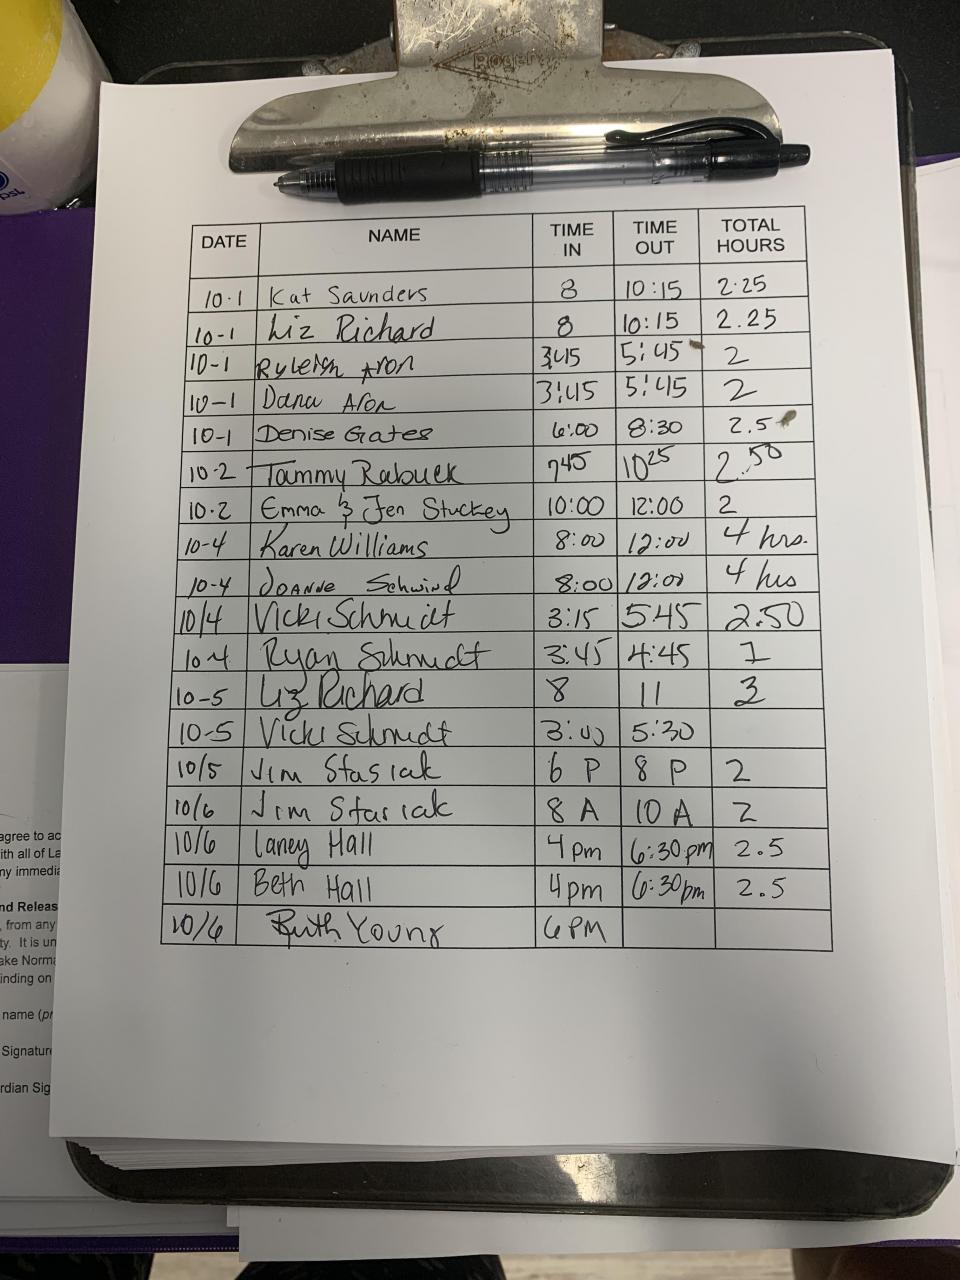 Rogers
DATE NAME TIME IN TIME OUT TOTAL HOURS
10-1 Kat Saunders 8 10:15 2.25
10-1 Liz Richard 8 10:15 2.25
10-1 Ryleigh Aron 3:45 5:45 2
10-1 Dana Aron 3:45 5:45 2
10-1 Denise Gates 6:00 8:30 2.5
10-2 Tammy Rabuck 745 1025 2.50
10-2 Emma & Jen Stuckey 10:00 12:00 2
10-4 Karen Williams 8:00 12:00 4 hrs.
10-4 Joanne Schwind 8:00 12:00 4 hrs
10/4 Vicki Schmidt 3:15 545 2.50
10-4 Ryan Schmidt 3:45 4:45 1
10-5 Liz Richard 8 11 3
10-5 Vicki Schmidt 3:00 5:30
10/5 Jim Stasiak 6 P 8 P 2
10/6 Jim Stasiak 8 A 10 A 2
10/6 Laney Hall 4 pm 6:30 pm 2.5
10/6 Beth Hall 4pm 6:30pm 2.5
10/6 Ruth Young 6 PM
agree to ac
ith all of La
ny immedia
nd Releas
, from any
ty. It is un
ake Norma
inding on
name (pr
Signature
rdian Sig